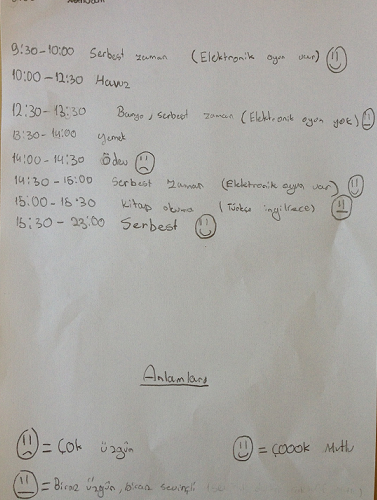 9:30-10:00 Serbest zaman (Elektronik oyun var)
10:00-12:30 Havuz
12:30-13:30 Banyo, serbest zaman (Elektronik oyun yok)
13:30-14:00 Yemek
14:00-14:30 Ödev
14:30-15:00 Serbest zaman (Elektronik oyun var)
15:00-15:30 kitap okuma (Türkçe ingilizce)
15:30-23:00 Serbest
Anlamları
= Çok üzgün
= ÇOOOK Mutlu
= Biraz üzgün, biraz sevinçli